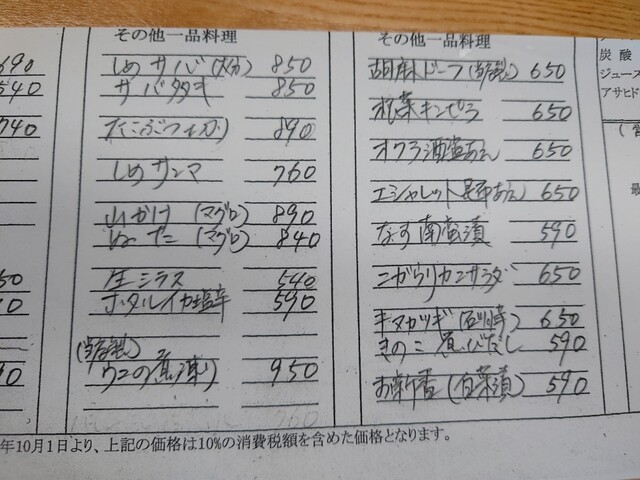 690
540
740
50
10
90
その他一品料理
しめサバ(大分) 850
サバタタキ 850
たこぶつ 890
しめサンマ 760
山かけ(マグロ) 890
ぬた(マグロ) 840
生シラス 540
ホタルイカ塩辛 590
(自家製)
ウニの煮凍り 950
760
その他一品料理
胡麻ドーフ(自家製) 650
根菜キンピラ 650
オクラ酒盗あえ 650
エシャレット昆布あえ 650
なす南蛮漬 590
ニガウリカンサラダ 650
キヌカツギ(石川芋) 650
きのこ煮びたし 590
お新香(白菜漬) 590
炭酸
ジュース
アサヒド
年10月1日より、上記の価格は10%の消費税額を含めた価格となります。